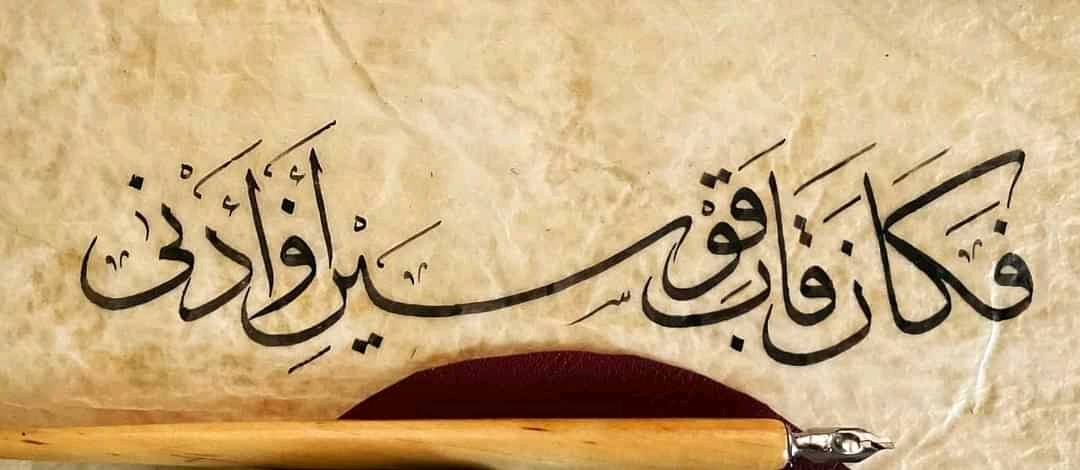 فَكَانَ قَابَ قَوْسَيْنِ أَوْ أَدْنَى